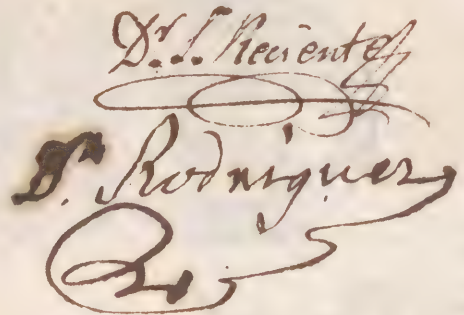 Dr. Sr. Reciente
Sr. Rodriguez